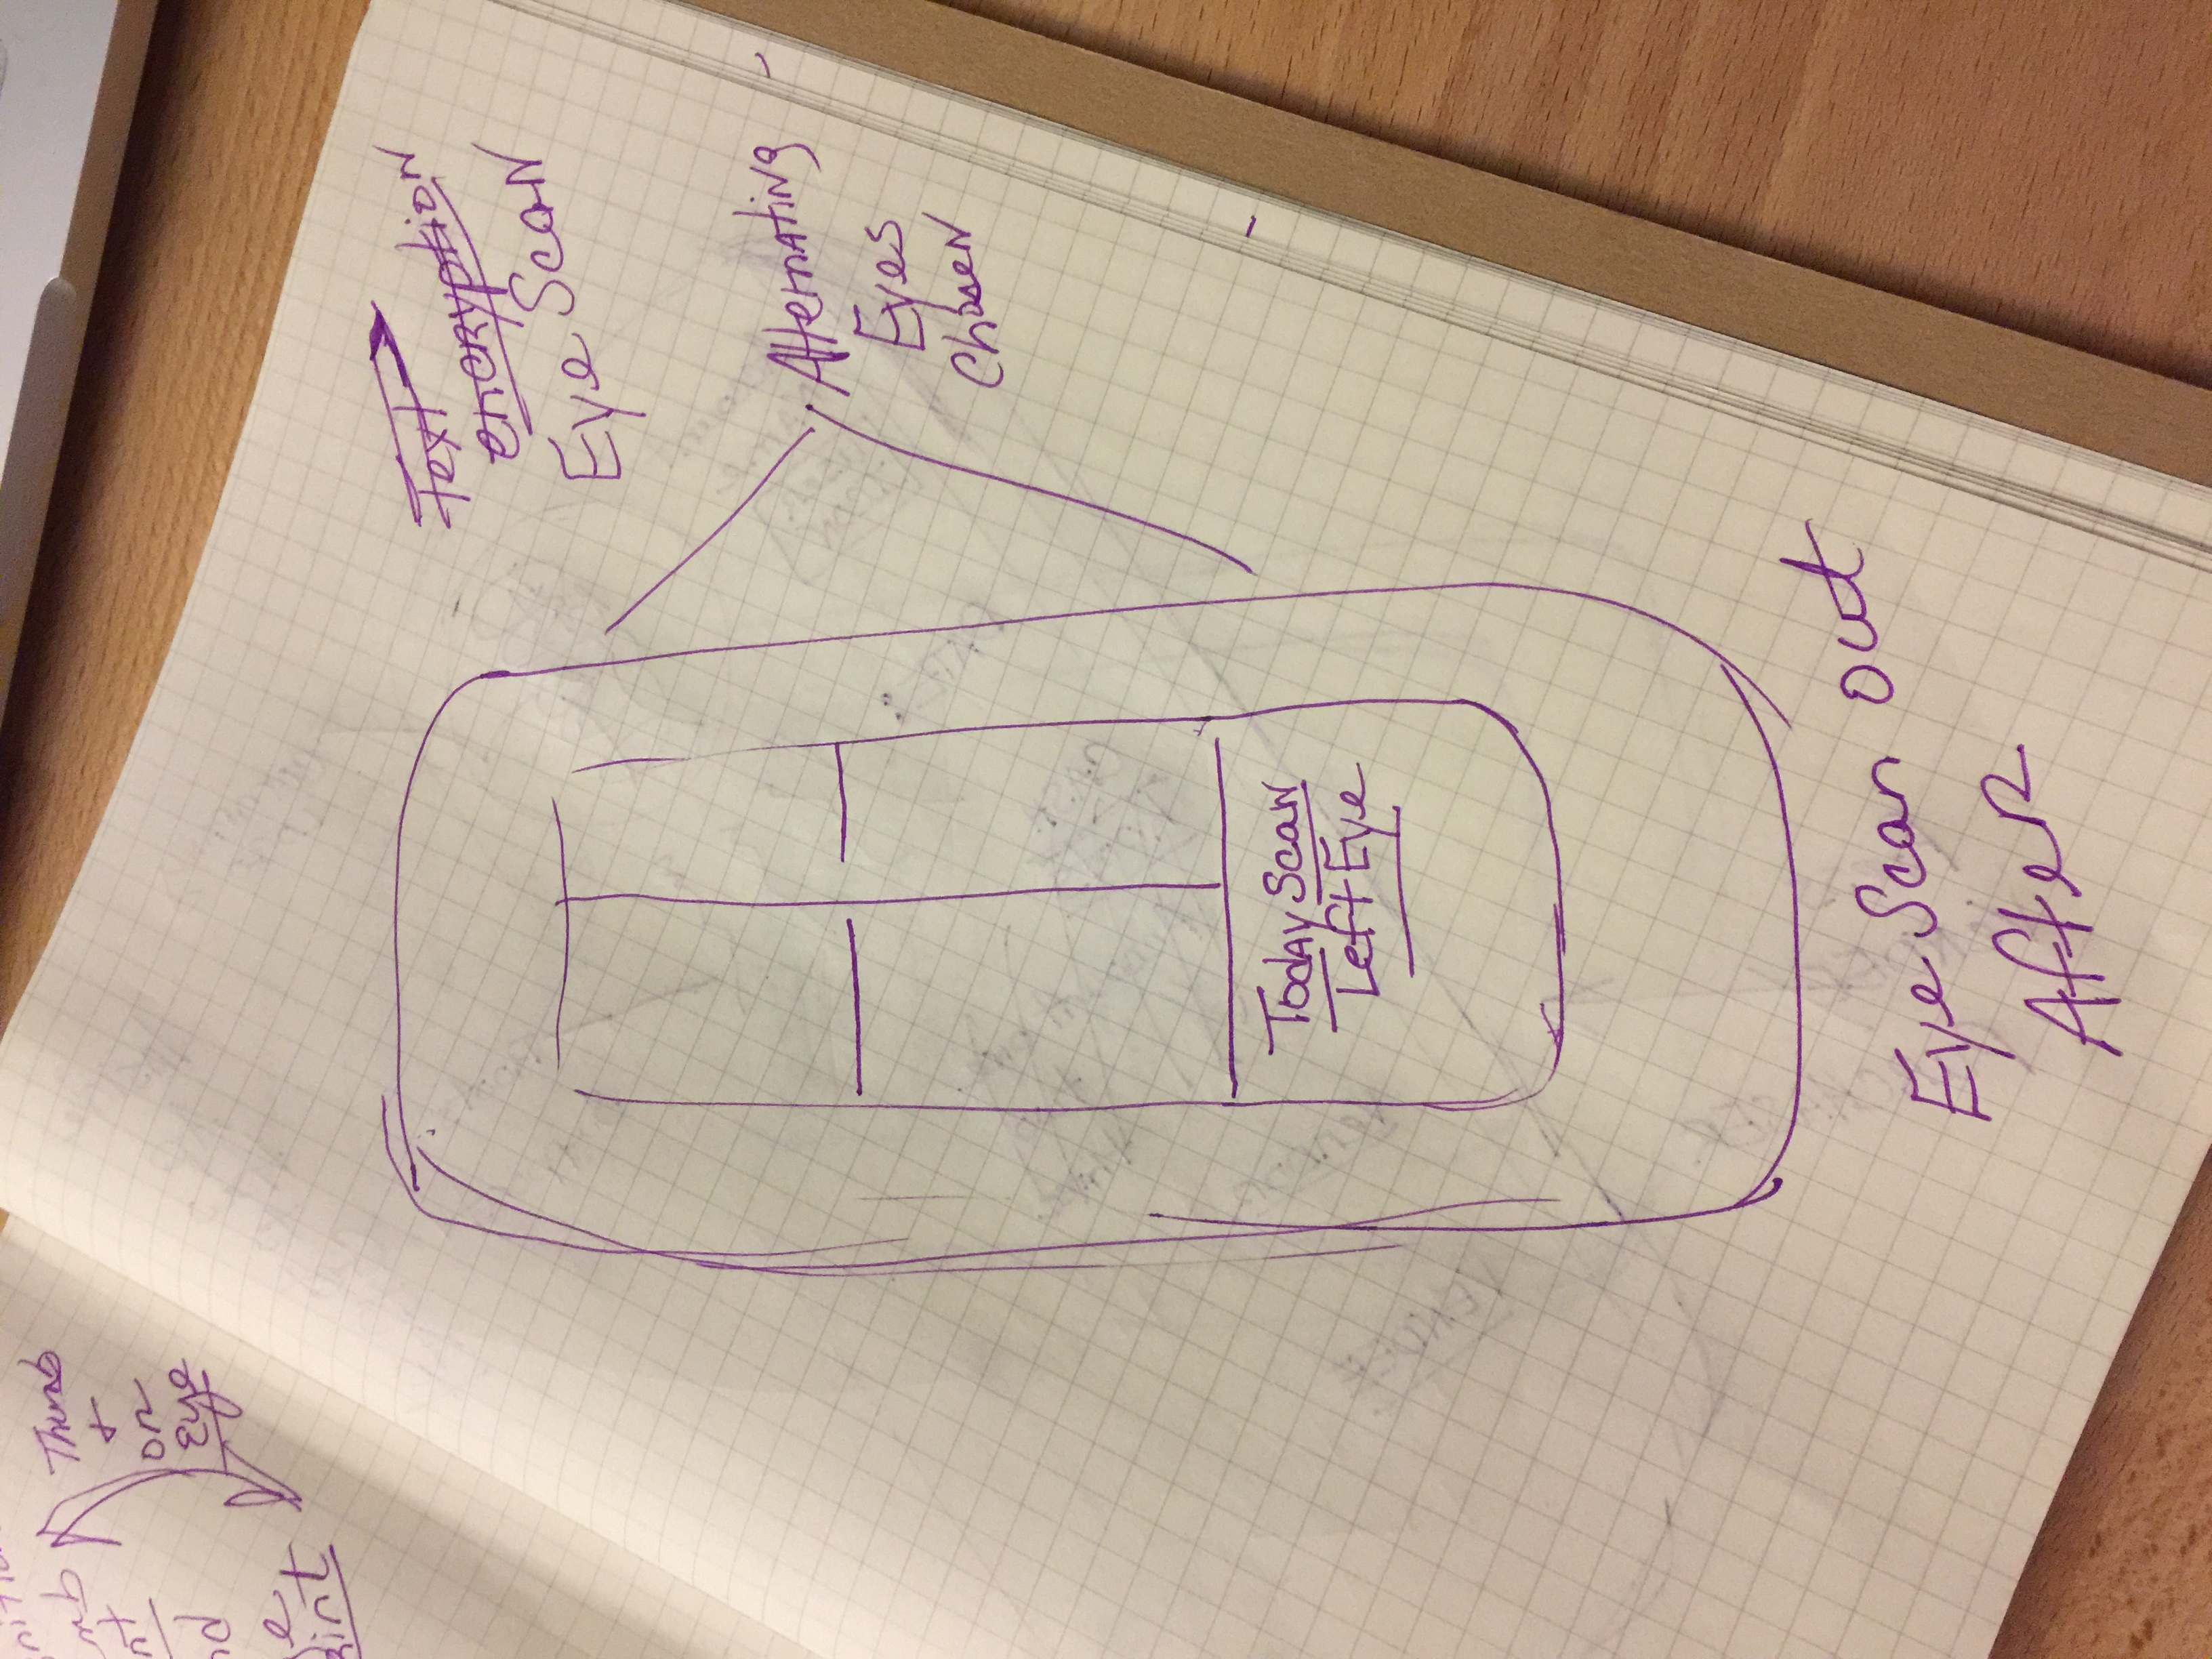 Thumb
+
or
Eye
Text
encryption
Eye Scan
Alternating
Eyes
Chosen
Today Scan
Left Eye
Eye Scan out
After